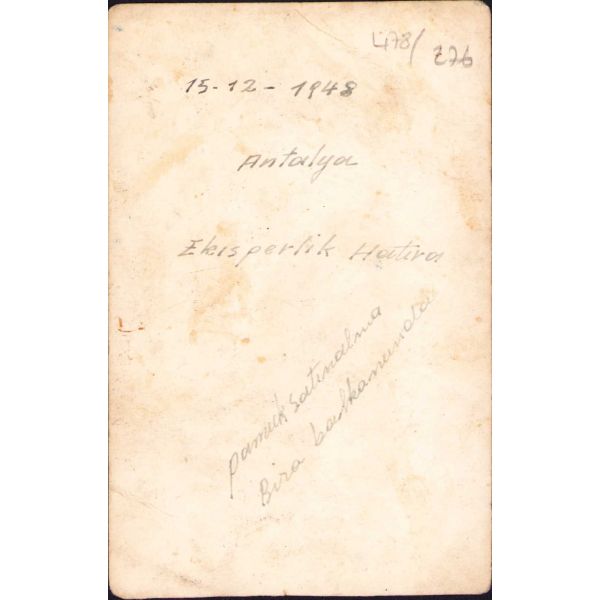 478/276
15-12-1948
Antalya
Ekisperlik Hatıra
pamuk satınalma
Bira